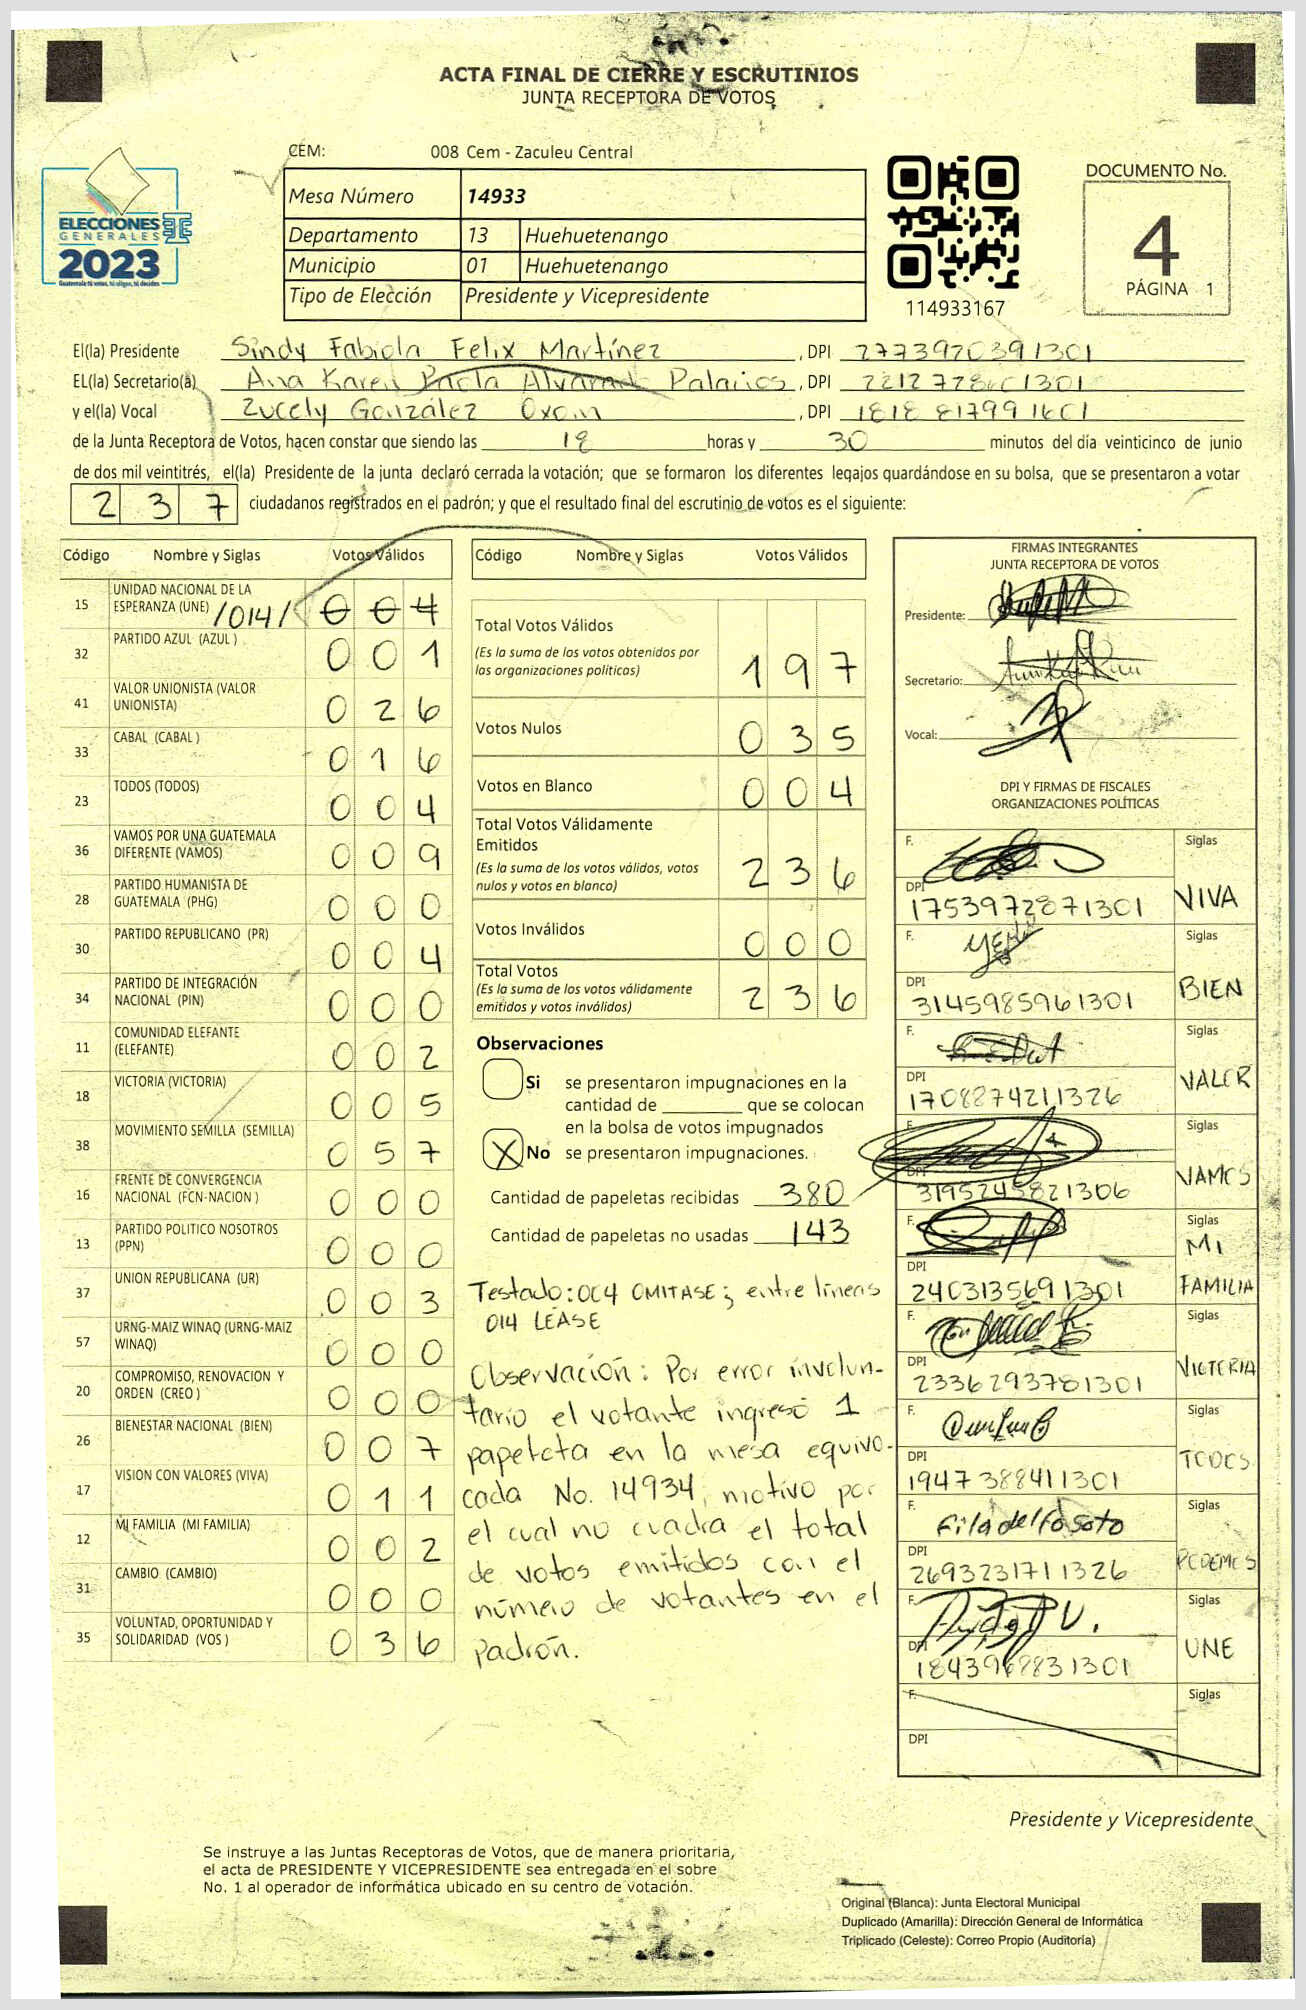 ACTA FINAL DE CIERRE Y ESCRUTINIOS
JUNTA RECEPTORA DE VOTOS
CEM: 008 Cem - Zaculeu Central
Mesa Número 14933
Departamento 13 Huehuetenango
Municipio 01 Huehuetenango
Tipo de Elección Presidente y Vicepresidente
ELECCIONES
GENERALES
2023
Guatemala tú votas, tú eliges, tú decides
114933167
DOCUMENTO No.
4
PÁGINA 1
El(la) Presidente Sindy Fabiola Felix Martínez, DPI 2773970391301
EL(la) Secretario(a) Ana Karen Paola Alvarado Palacios, DPI
y el(la) Vocal Zucely González Oxom, DPI 1818817991601
de la Junta Receptora de Votos, hacen constar que siendo las 18 horas y 30 minutos del día veinticinco de junio
de dos mil veintitrés, el(la) Presidente de la junta declaró cerrada la votación; que se formaron los diferentes legajos guardándose en su bolsa, que se presentaron a votar
237 ciudadanos registrados en el padrón; y que el resultado final del escrutinio de votos es el siguiente:
Código Nombre y Siglas Votos Válidos
15 UNIDAD NACIONAL DE LA
ESPERANZA (UNE) /014/ 004
32 PARTIDO AZUL (AZUL ) 001
41 VALOR UNIONISTA (VALOR
UNIONISTA) 026
33 CABAL (CABAL ) 016
23 TODOS (TODOS) 004
36 VAMOS POR UNA GUATEMALA
DIFERENTE (VAMOS) 009
28 PARTIDO HUMANISTA DE
GUATEMALA (PHG) 000
30 PARTIDO REPUBLICANO (PR) 004
34 PARTIDO DE INTEGRACIÓN
NACIONAL (PIN) 000
11 COMUNIDAD ELEFANTE
(ELEFANTE) 002
18 VICTORIA (VICTORIA) 005
38 MOVIMIENTO SEMILLA (SEMILLA) 057
16 FRENTE DE CONVERGENCIA
NACIONAL (FCN-NACION ) 000
13 PARTIDO POLITICO NOSOTROS
(PPN) 000
37 UNION REPUBLICANA (UR) 003
57 URNG-MAIZ WINAQ (URNG-MAIZ
WINAQ) 000
20 COMPROMISO, RENOVACION Y
ORDEN (CREO ) 000
26 BIENESTAR NACIONAL (BIEN) 007
17 VISION CON VALORES (VIVA) 011
12 MI FAMILIA (MI FAMILIA) 002
31 CAMBIO (CAMBIO) 000
35 VOLUNTAD, OPORTUNIDAD Y
SOLIDARIDAD (VOS ) 036
Código Nombre y Siglas Votos Válidos
Total Votos Válidos
(Es la suma de los votos obtenidos por
las organizaciones políticas) 197
Votos Nulos 035
Votos en Blanco 004
Total Votos Válidamente
Emitidos
(Es la suma de los votos válidos, votos
nulos y votos en blanco) 236
Votos Inválidos 000
Total Votos
(Es la suma de los votos válidamente
emitidos y votos inválidos) 236
Observaciones
Si se presentaron impugnaciones en la
cantidad de ________ que se colocan
en la bolsa de votos impugnados
X No se presentaron impugnaciones.
Cantidad de papeletas recibidas 380
Cantidad de papeletas no usadas 143
Testado: 004 OMITASE; entre lineas
014 LEASE
Observación: Por error involun-
tario el votante ingresó 1
papeleta en la mesa equivo-
cada No. 14934, motivo por
el cual no cuadra el total
de votos emitidos con el
número de votantes en el
padrón.
FIRMAS INTEGRANTES
JUNTA RECEPTORA DE VOTOS
Presidente:
Secretario:
Vocal:
DPI Y FIRMAS DE FISCALES
ORGANIZACIONES POLÍTICAS
F. Siglas
DPI 1753972871301 VIVA
F. Siglas
DPI 3145985961301 BIEN
F. Siglas
DPI 1708274211326 VALOR
F. Siglas
DPI 3195245821306 VAMOS
F. Siglas
DPI 2403135691301 MI FAMILIA
F. Siglas
DPI 2336293781301 VICTORIA
F. Siglas
DPI 1947388411301 TODOS
F. Filadelfo Soto Siglas
DPI 2693231711326 PODEMOS
F. Siglas
DPI 1843969831301 UNE
F. Siglas
DPI
Presidente y Vicepresidente
Se instruye a las Juntas Receptoras de Votos, que de manera prioritaria,
el acta de PRESIDENTE Y VICEPRESIDENTE sea entregada en el sobre
No. 1 al operador de informática ubicado en su centro de votación.
Original (Blanca): Junta Electoral Municipal
Duplicado (Amarilla): Dirección General de Informática
Triplicado (Celeste): Correo Propio (Auditoría)